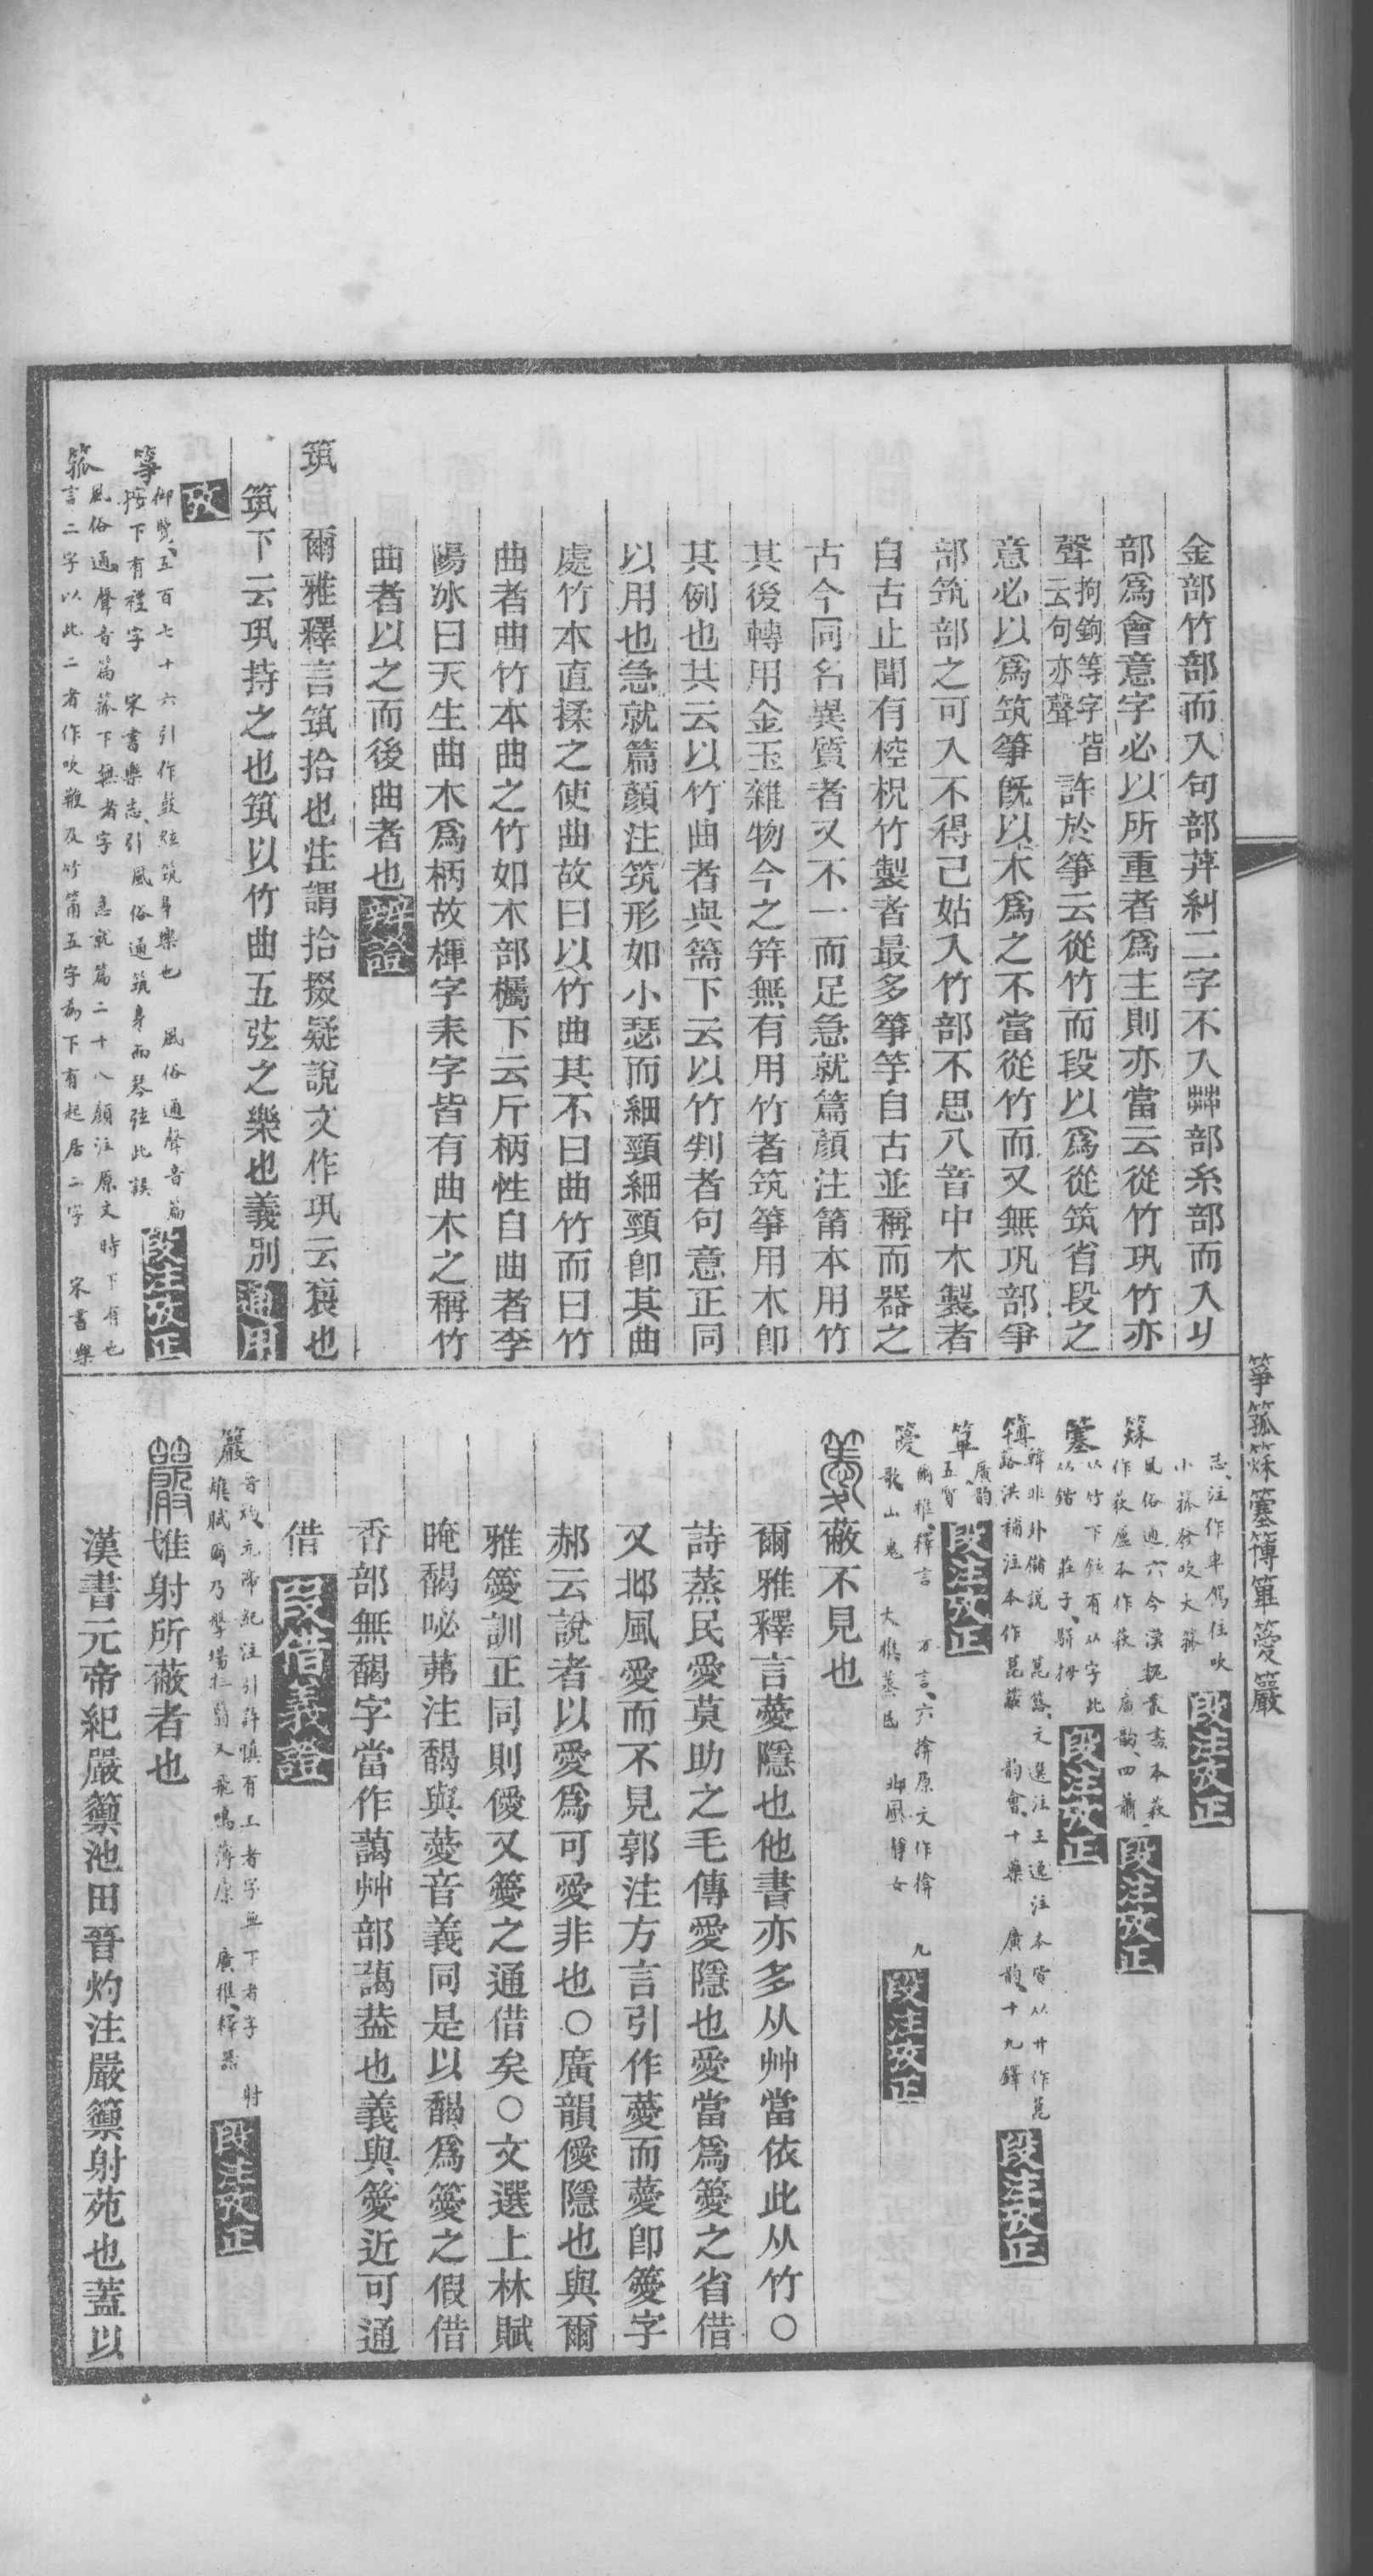 金部竹部而入句部茻糾二字不入茻部糸部而入丩
部爲會意字必以所重者爲主則亦當云從竹巩竹亦
聲拘鉤等字皆云句亦聲許於箏云從竹而段以爲從筑省段之
意必以爲筑箏旣以木爲之不當從竹而又無巩部爭
部筑部之可入不得已姑入竹部不思八音中木製者
自古止聞有椌柷竹製者最多箏竽自古並稱而器之
古今同名異質者又不一而足急就篇顏注箾本用竹
其後轉用金玉雜物今之笄無有用竹者筑箏用木卽
其例也其云以竹曲者與籥下云以竹判者句意正同
以用也急就篇顏注筑形如小瑟而細頸細頸卽其曲
處竹本直揉之使曲故曰以竹曲其不曰曲竹而曰竹
曲者曲竹本曲之竹如木部欘下云斤柄性自曲者李
陽冰曰天生曲木爲柄故楎字耒字皆有曲木之稱竹
曲者以之而後曲者也辨證
筑 爾雅釋言筑拾也注謂拾掇疑說文作巩云褱也
筑下云巩持之也筑以竹曲五弦之樂也義別通用
攷
箏 御覽五百七十六引作鼓弦筑身樂也 風俗通聲音篇
按下有禮字 宋書樂志引風俗通筑身而琴弦此誤段注攷正
箛 風俗通聲音篇箛下無者字 急就篇二十八顏注原文時下有也
言二字以此二者作吹鞭及竹箾五字爲下有起居二字 宋書樂
箏箛簺簙篳薆籔
志注作車駕往吹
小箛發吹大箛 段注攷正
風俗通六今漢魏叢書本萩
作萩盧本作萩 廣韵四蕭 段注攷正
簺 以竹下弦有从字此
以鍇 莊子駢拇 段注攷正
簙 韓非外儲說 箟簬文選注王逸注本皆从廾作菎
路洪補注本作菎蔽 韵會十藥 廣韵十九鐸 段注攷正
篳 廣韵
五質 段注攷正
薆 爾雅釋言 方言六揜原文作揜 九
歌山鬼 大雅蒸民 邶風靜女 段注攷正
蔽不見也
爾雅釋言薆隱也他書亦多从艸當依此从竹○
詩蒸民愛莫助之毛傳愛隱也愛當爲薆之省借
又邶風愛而不見郭注方言引作薆而薆卽薆字
郝云說者以愛爲可愛非也○廣韻僾隱也與爾
雅薆訓正同則僾又薆之通借矣○文選上林賦
晻馤咇茀注馤與薆音義同是以馤爲薆之假借
香部無馤字當作藹艸部藹蓋也義與薆近可通
借 段借義證
籔 音灼元帝紀注引許慎有工者字無下者字 射
雉賦爾乃擘場拄翳又飛鳴薄廩 廣雅釋器 段注攷正
惟射所蔽者也
漢書元帝紀嚴籞池田晉灼注嚴籞射苑也蓋以